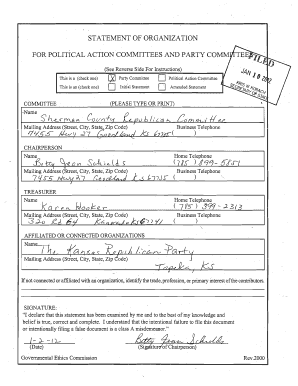 STATEMENT OF ORGANIZATION
FOR POLITICAL ACTION COMMITTEES AND PARTY COMMITTEES
FILED
JAN 10 2012
SECRETARY OF STATE
(See Reverse Side For Instructions)
This is a (check one) X Party Committee Political Action Committee
This is an (check one) Initial Statement Amended Statement
COMMITTEE (PLEASE TYPE OR PRINT)
Name
Sherman County Republican Committee
Mailing Address (Street, City, State, Zip Code) Business Telephone
7455 Hwy 27 Goodland KS 67735 ( )
CHAIRPERSON
Name Home Telephone
Betty Jean Schields (785) 899-5551
Mailing Address (Street, City, State, Zip Code) Business Telephone
7455 Hwy 27 Goodland KS 67735 ( )
TREASURER
Name Home Telephone
Karen Hooker (785) 399-2313
Mailing Address (Street, City, State, Zip Code) Business Telephone
320 Rd 64 Kanorado KS 67741 ( )
AFFILIATED OR CONNECTED ORGANIZATIONS
Name
The Kansas Republican Party
Mailing Address (Street, City, State, Zip Code)
Topeka, KS
If not connected or affiliated with an organization, identify the trade, profession, or primary interest of the contributors.
SIGNATURE:
"I declare that this statement has been examined by me and to the best of my knowledge and
belief is true, correct and complete. I understand that the intentional failure to file this document
or intentionally filing a false document is a class A misdemeanor."
1-2-12 Betty Jean Schields
(Date) (Signature of Chairperson)
Governmental Ethics Commission Rev.2000